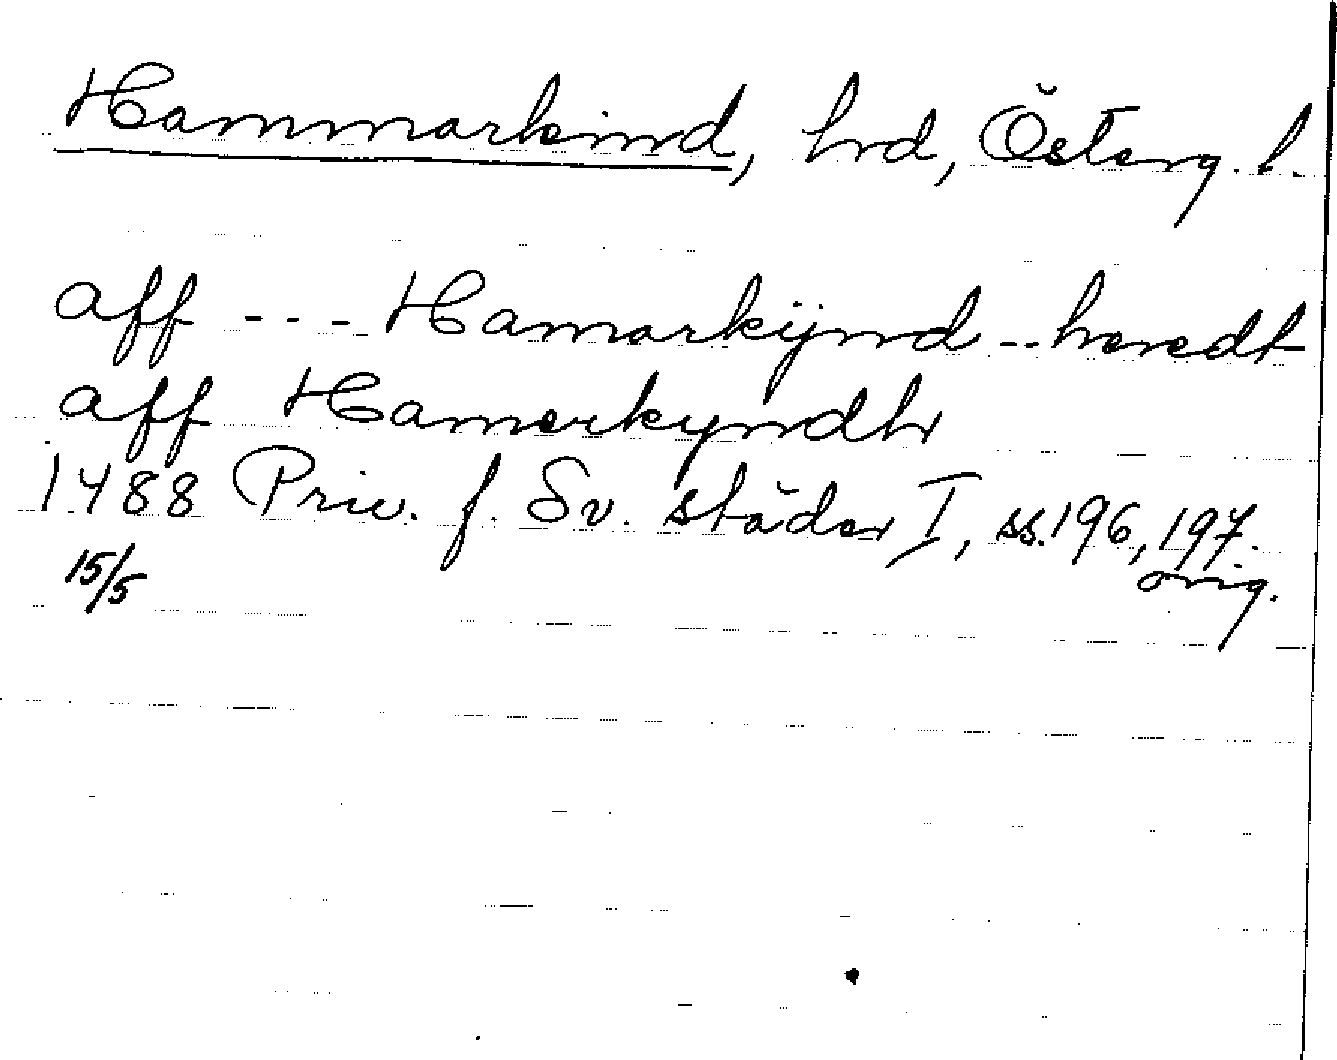 Hammarkind, hrd, Österg. l.
aff --- Hamarkÿnd -- heredt
aff Hamerkyndh
1488 Priv. f. Sv. städer I, ss. 196, 197.
15/5 orig.